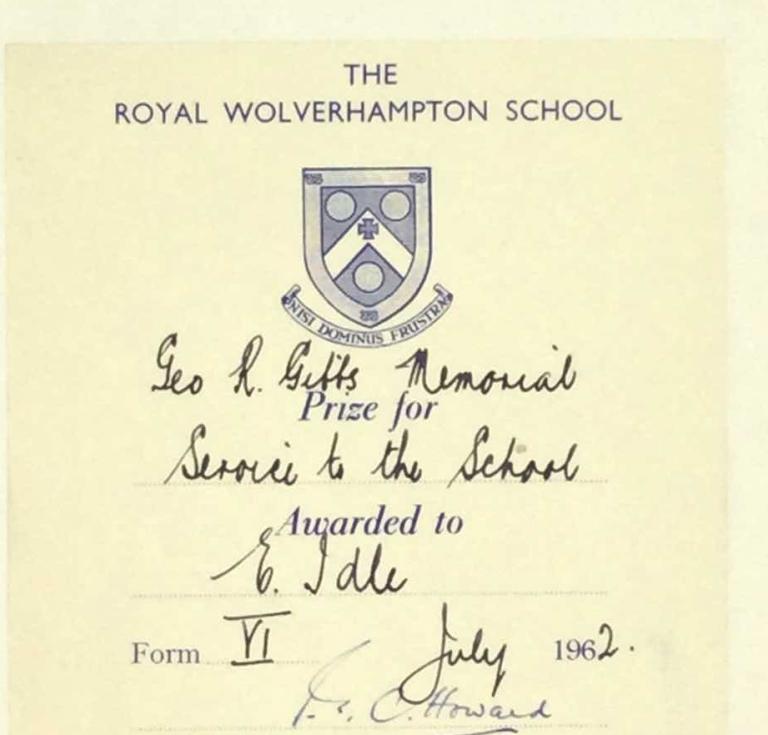 THE
ROYAL WOLVERHAMPTON SCHOOL
NISI DOMINUS FRUSTRA
Geo R. Gibbs Memorial
Prize for
Service to the School
Awarded to
E. Idle
Form VI July 1962.
C. Howard